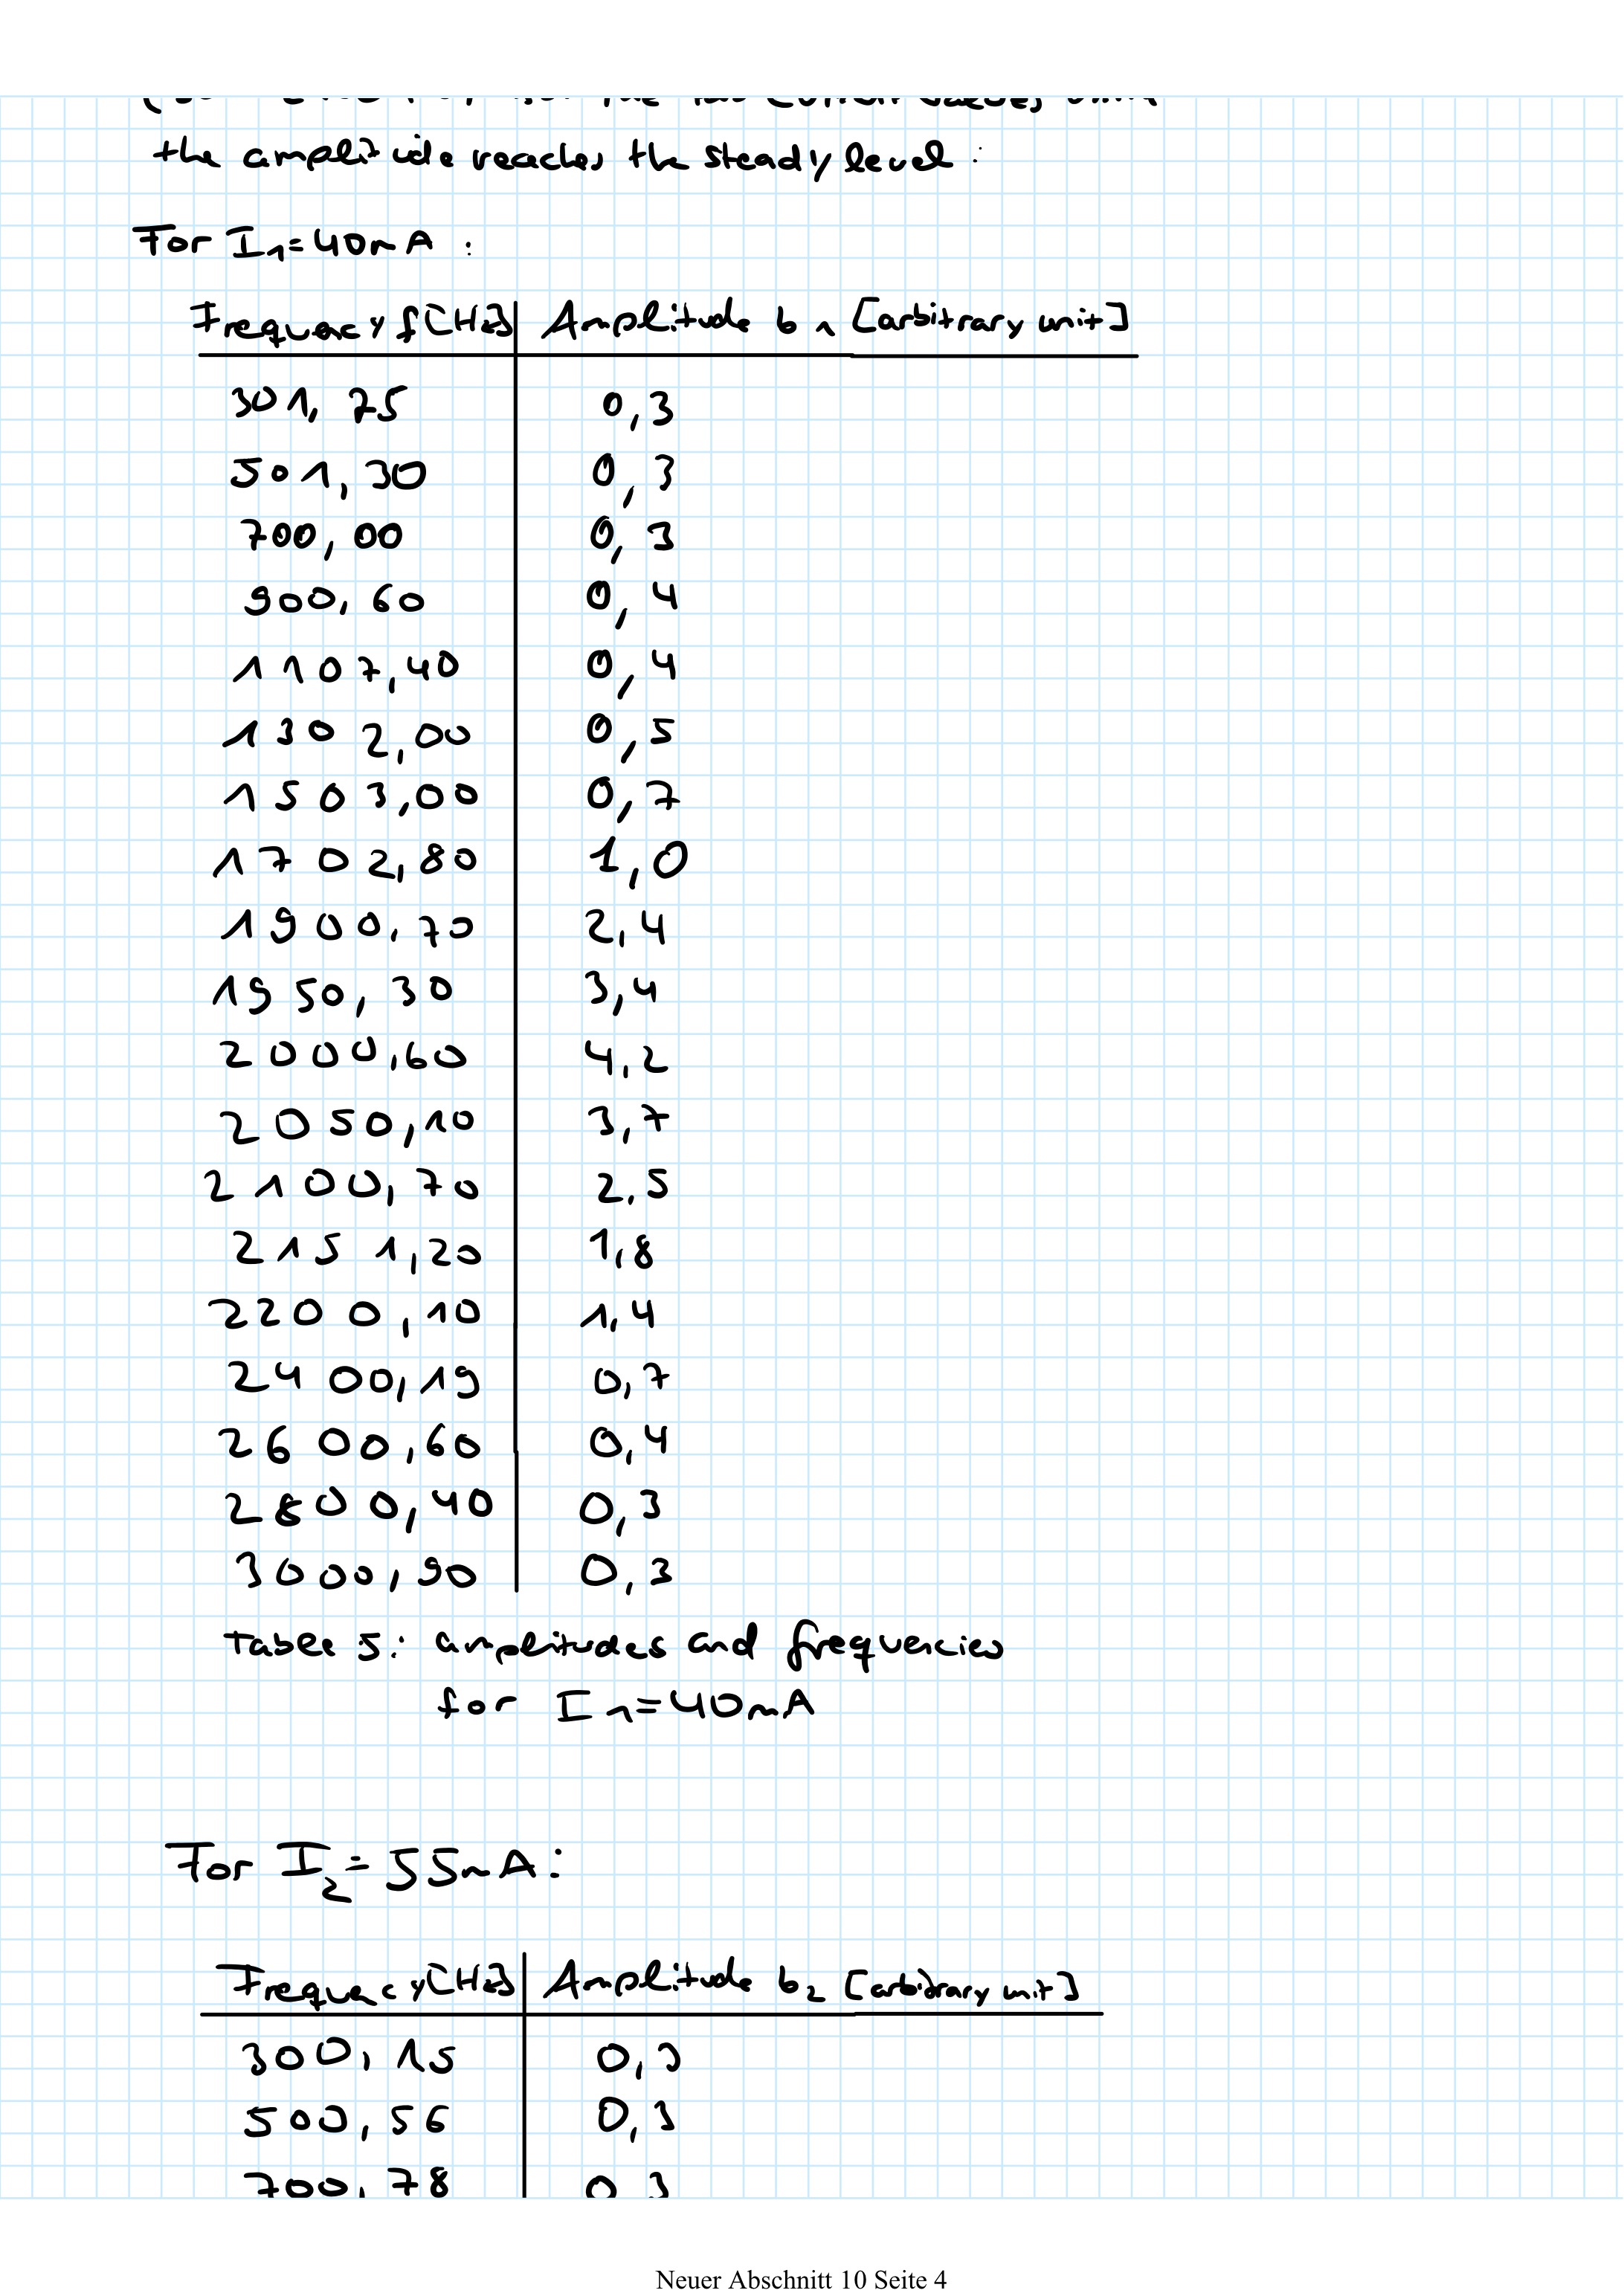 the amplitude reaches the steady level :
For I1=40mA :
Frequency f[Hz] Amplitude b1 [arbitrary unit]
301,75 0,3
501,30 0,3
700,00 0,3
900,60 0,4
1107,40 0,4
1302,00 0,5
1503,00 0,7
1702,80 1,0
1900,70 2,4
1950,30 3,4
2000,60 4,2
2050,10 3,7
2100,70 2,5
2151,20 1,8
2200,10 1,4
2400,19 0,7
2600,60 0,4
2800,40 0,3
3000,90 0,3
Table 5: amplitudes and frequencies
for I1=40mA
For I2=55mA:
Frequency[Hz] Amplitude b2 [arbitrary unit]
300,15 0,3
500,56 0,3
700,78 0,3
Neuer Abschnitt 10 Seite 4